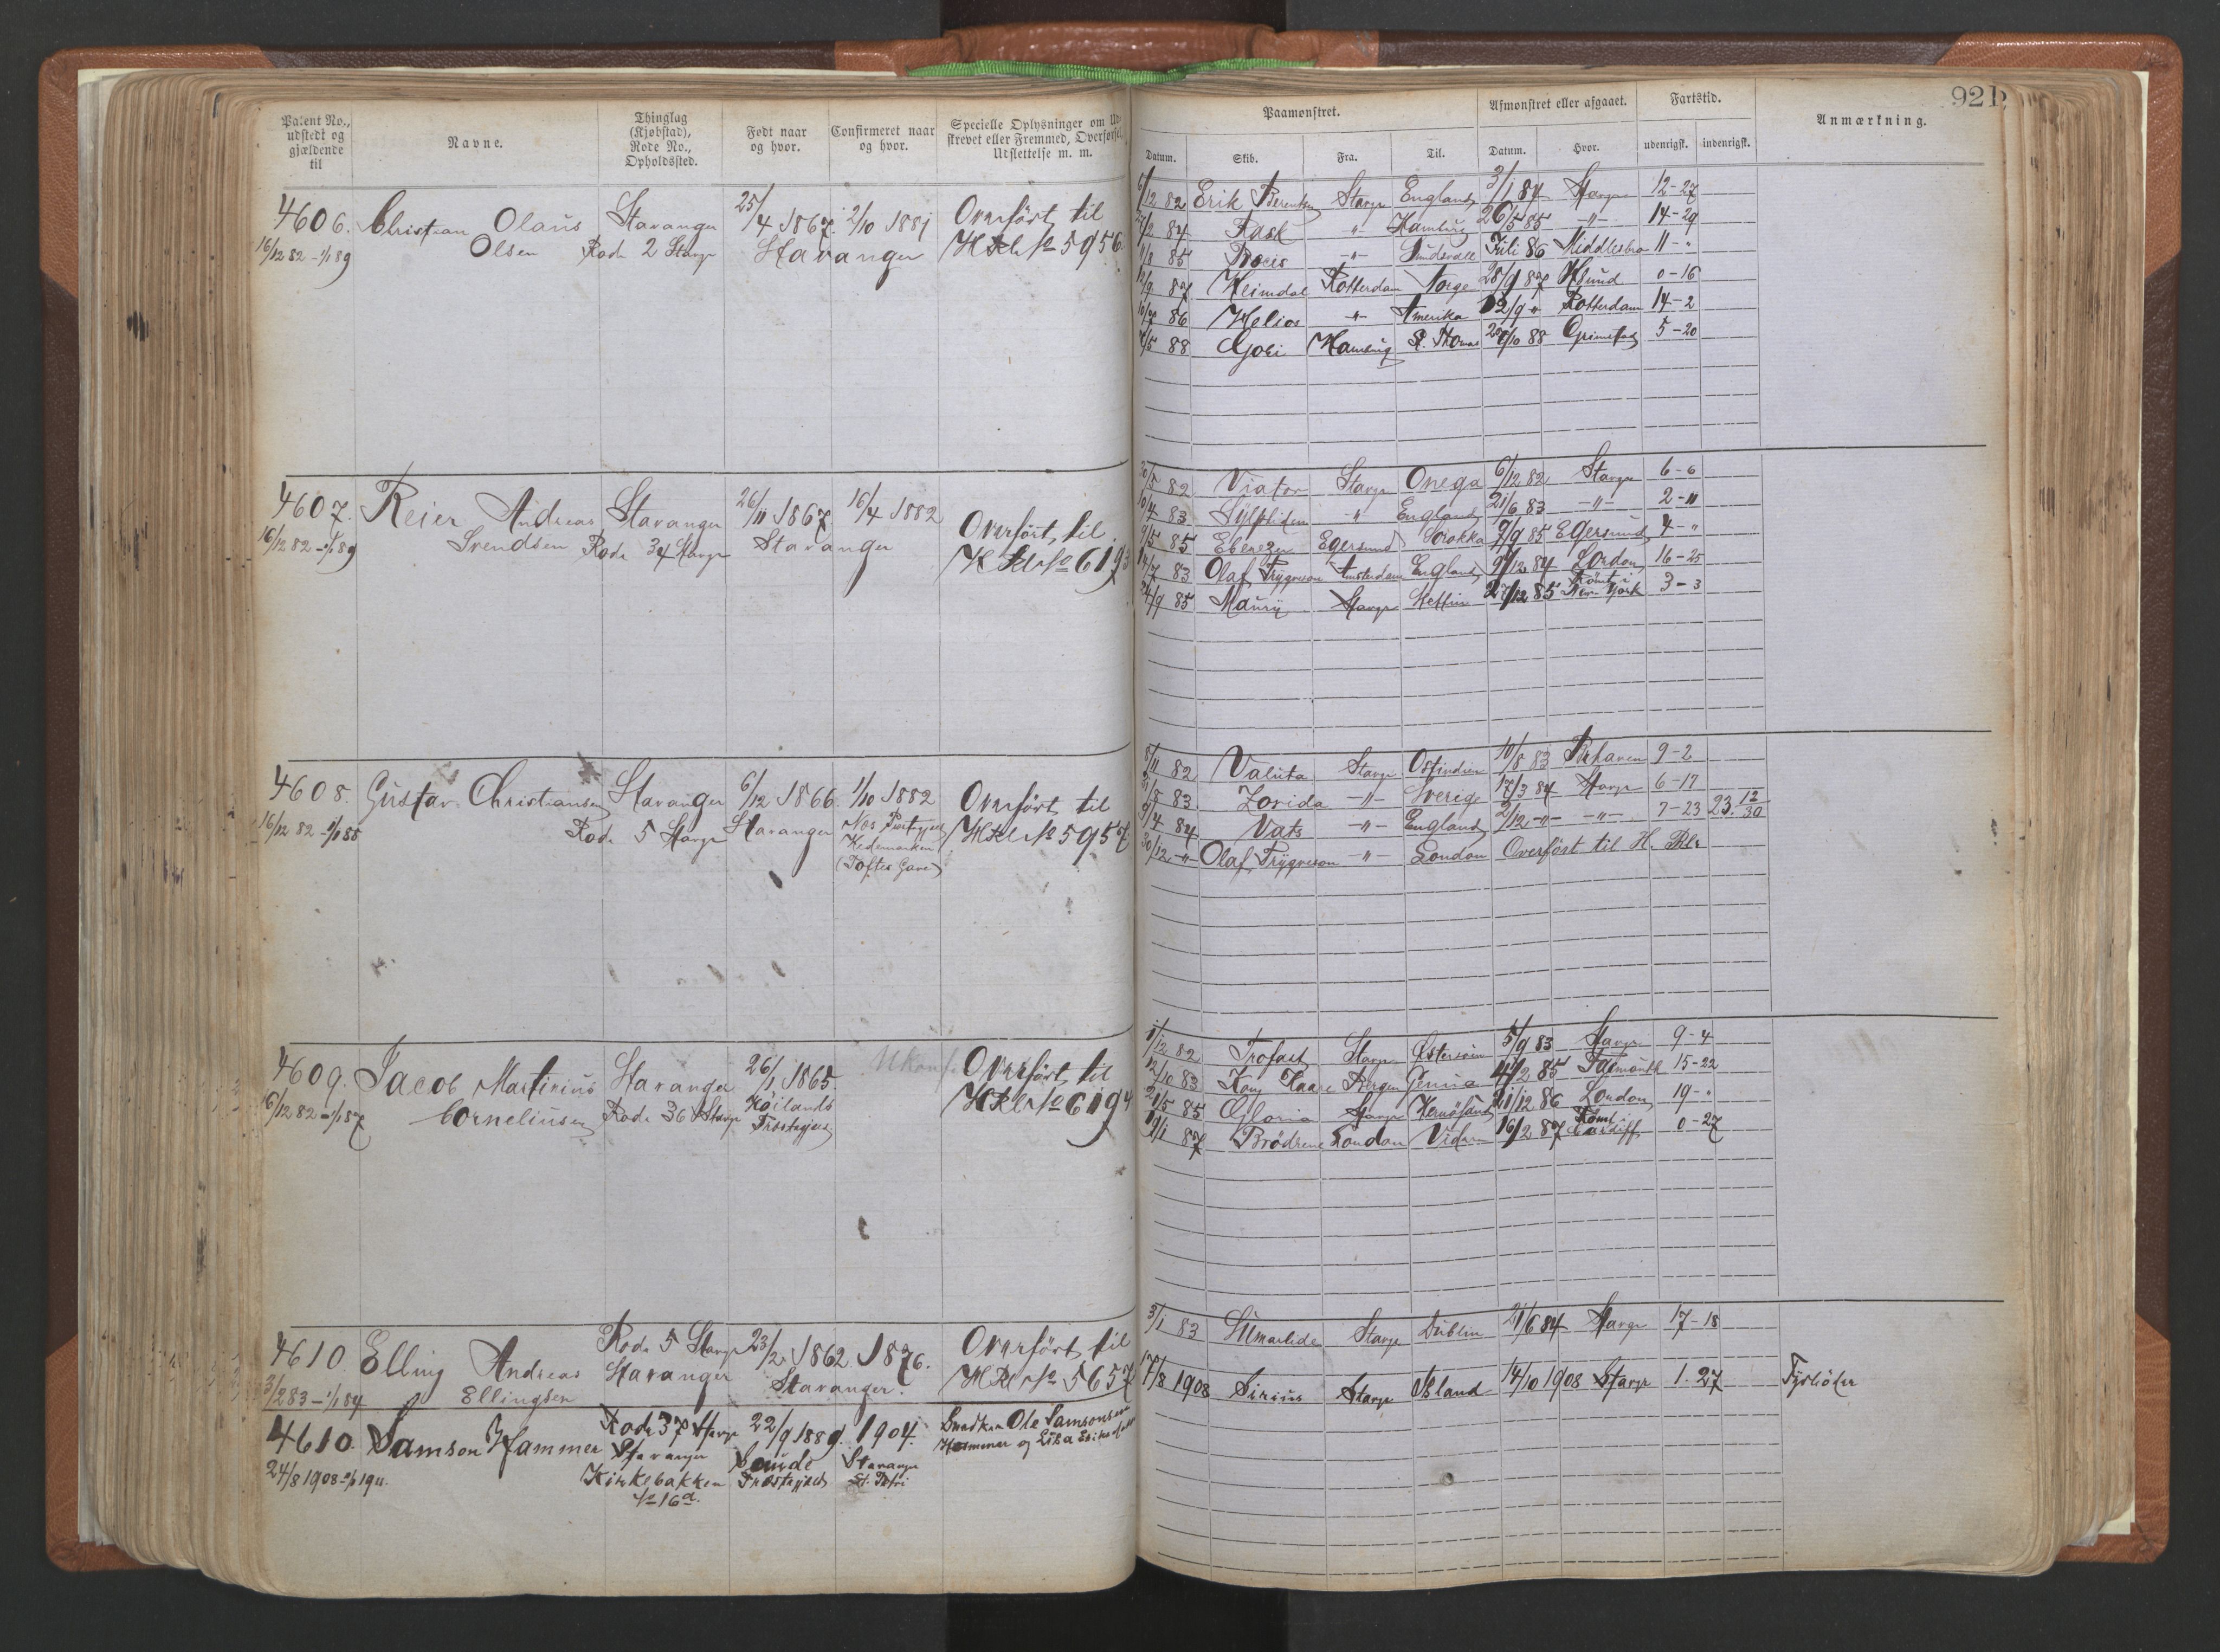 921
Patent No., udstedt og gjældende til
Navne.
Thinglag (Kjøbstad), Rode No., Opholdssted.
Født naar og hvor.
Confirmeret naar og hvor.
Specielle Oplysninger om Ud-
skrevet eller Fremmed, Overførsel,
Udslettelse m. m.
Paamønstret.
Afmønstret eller afgaaet.
Fartstid.
Anmærkning.
Datum. Skib. Fra. Til. Datum. Hvor. udenrigsk. indenrigsk.
4606. Christian Olaus Stavanger 25/4 1867. 2/10 1881 Overført til
16/12 82 - 1/1 89 Olsen Rode 2 Stavgr Stavanger H Rl No 5956
/12 82 Erik Berentsen Stavgr England 3/1 84 Stavgr 12-27
/2 84 Rask " Hamburg 26/5 85 -"- 14-29
85 -"- Sundsvall Juli 86 Middlesbro 11-"
/9 87 Heimdal Rotterdam Norge 28/9 87 Hsund 0-16
86 Helios -"- Amerika 12/9 " Rotterdam 14-2
/5 88 Hamburg St. Thomas /10 88 Grimstad 5-20
4607. Reier Andreas Stavanger 26/11 1867. 16/4 1882 Overført til
16/12 82 - 1/1 89 Svendsen Rode 34 Stavgr Stavanger H Rl No 6193
30/5 82 Viator Stavgr Onega 6/12 82 Stavgr 6-6
/4 83 Sylphiden " England 21/6 83 -"- 2-11
9/5 85 Ebenezer Egersund Sorokka 7/9 85 Egersund 4-"
/7 83 Olaf Trygveson Amsterdam England 9/12 84 London 16-25
/9 85 Maury Stavgr Stettin 27/12 85 Rømt i New York 3-3
4608. Gustav Christiansen Stavanger 6/12 1866. 1/10 1882 Overført til
16/12 82 - 1/1 88 Rode 5 Stavgr Stavanger Nes Prestegjeld H Rl No 5957
Hedemarken
(Toftes Gave)
8/11 82 Valuta Stavgr Ostindien 10/8 83 Brhaven 9-2
83 Zorida -"- Sverige 17/3 84 Stavgr 6-17
/4 84 Vats -"- England 2/12 -"- -"- 7-23 23. 12/30
30/12 -"- Olaf Trygveson -"- London Overført til H. Rl
4609. Jacob Martinius Stavanger 26/1 1865. Ukonf. Overført til
16/12 82 - 1/1 87 Corneliusen Rode 36 Stavgr Høilands H Rl No 6194
Præstegjeld
/12 82 Trofast Stavgr Østersøen 5/9 83 Stavgr 9-4
12/10 83 Kong Haare Bergen Genua 4/2 85 Falmouth 15-22
21/5 85 Gloria Stavgr Hernøsand 21/12 86 London 19-"
19/1 87 Brødrene London Vidre 16/2 87 Rømt i Cardiff 0-27
4610. Elling Andreas Rode 5 Stavgr 23/2 1862. 1876. Overført til
3/2 83 - 1/1 84 Ellingsen Stavanger Stavanger. H Rl No 5657
3/1 83 Stavgr Dublin 21/6 84 Stavgr 17-18
4610. Samson Hammer Rode 37 Stavgr 22/9 1889. 1904. Snedker Ole Samsonsen
24/8 1908 - 1/1 1911. Stavanger Soude Stavanger Hammer og Lisa
Kirkebakken Præstegjeld St. Petri
No 16a.
17/8 1908 Sirius Stavgr Island 14/10 1908 Stavgr 1.27 Fyrbøder